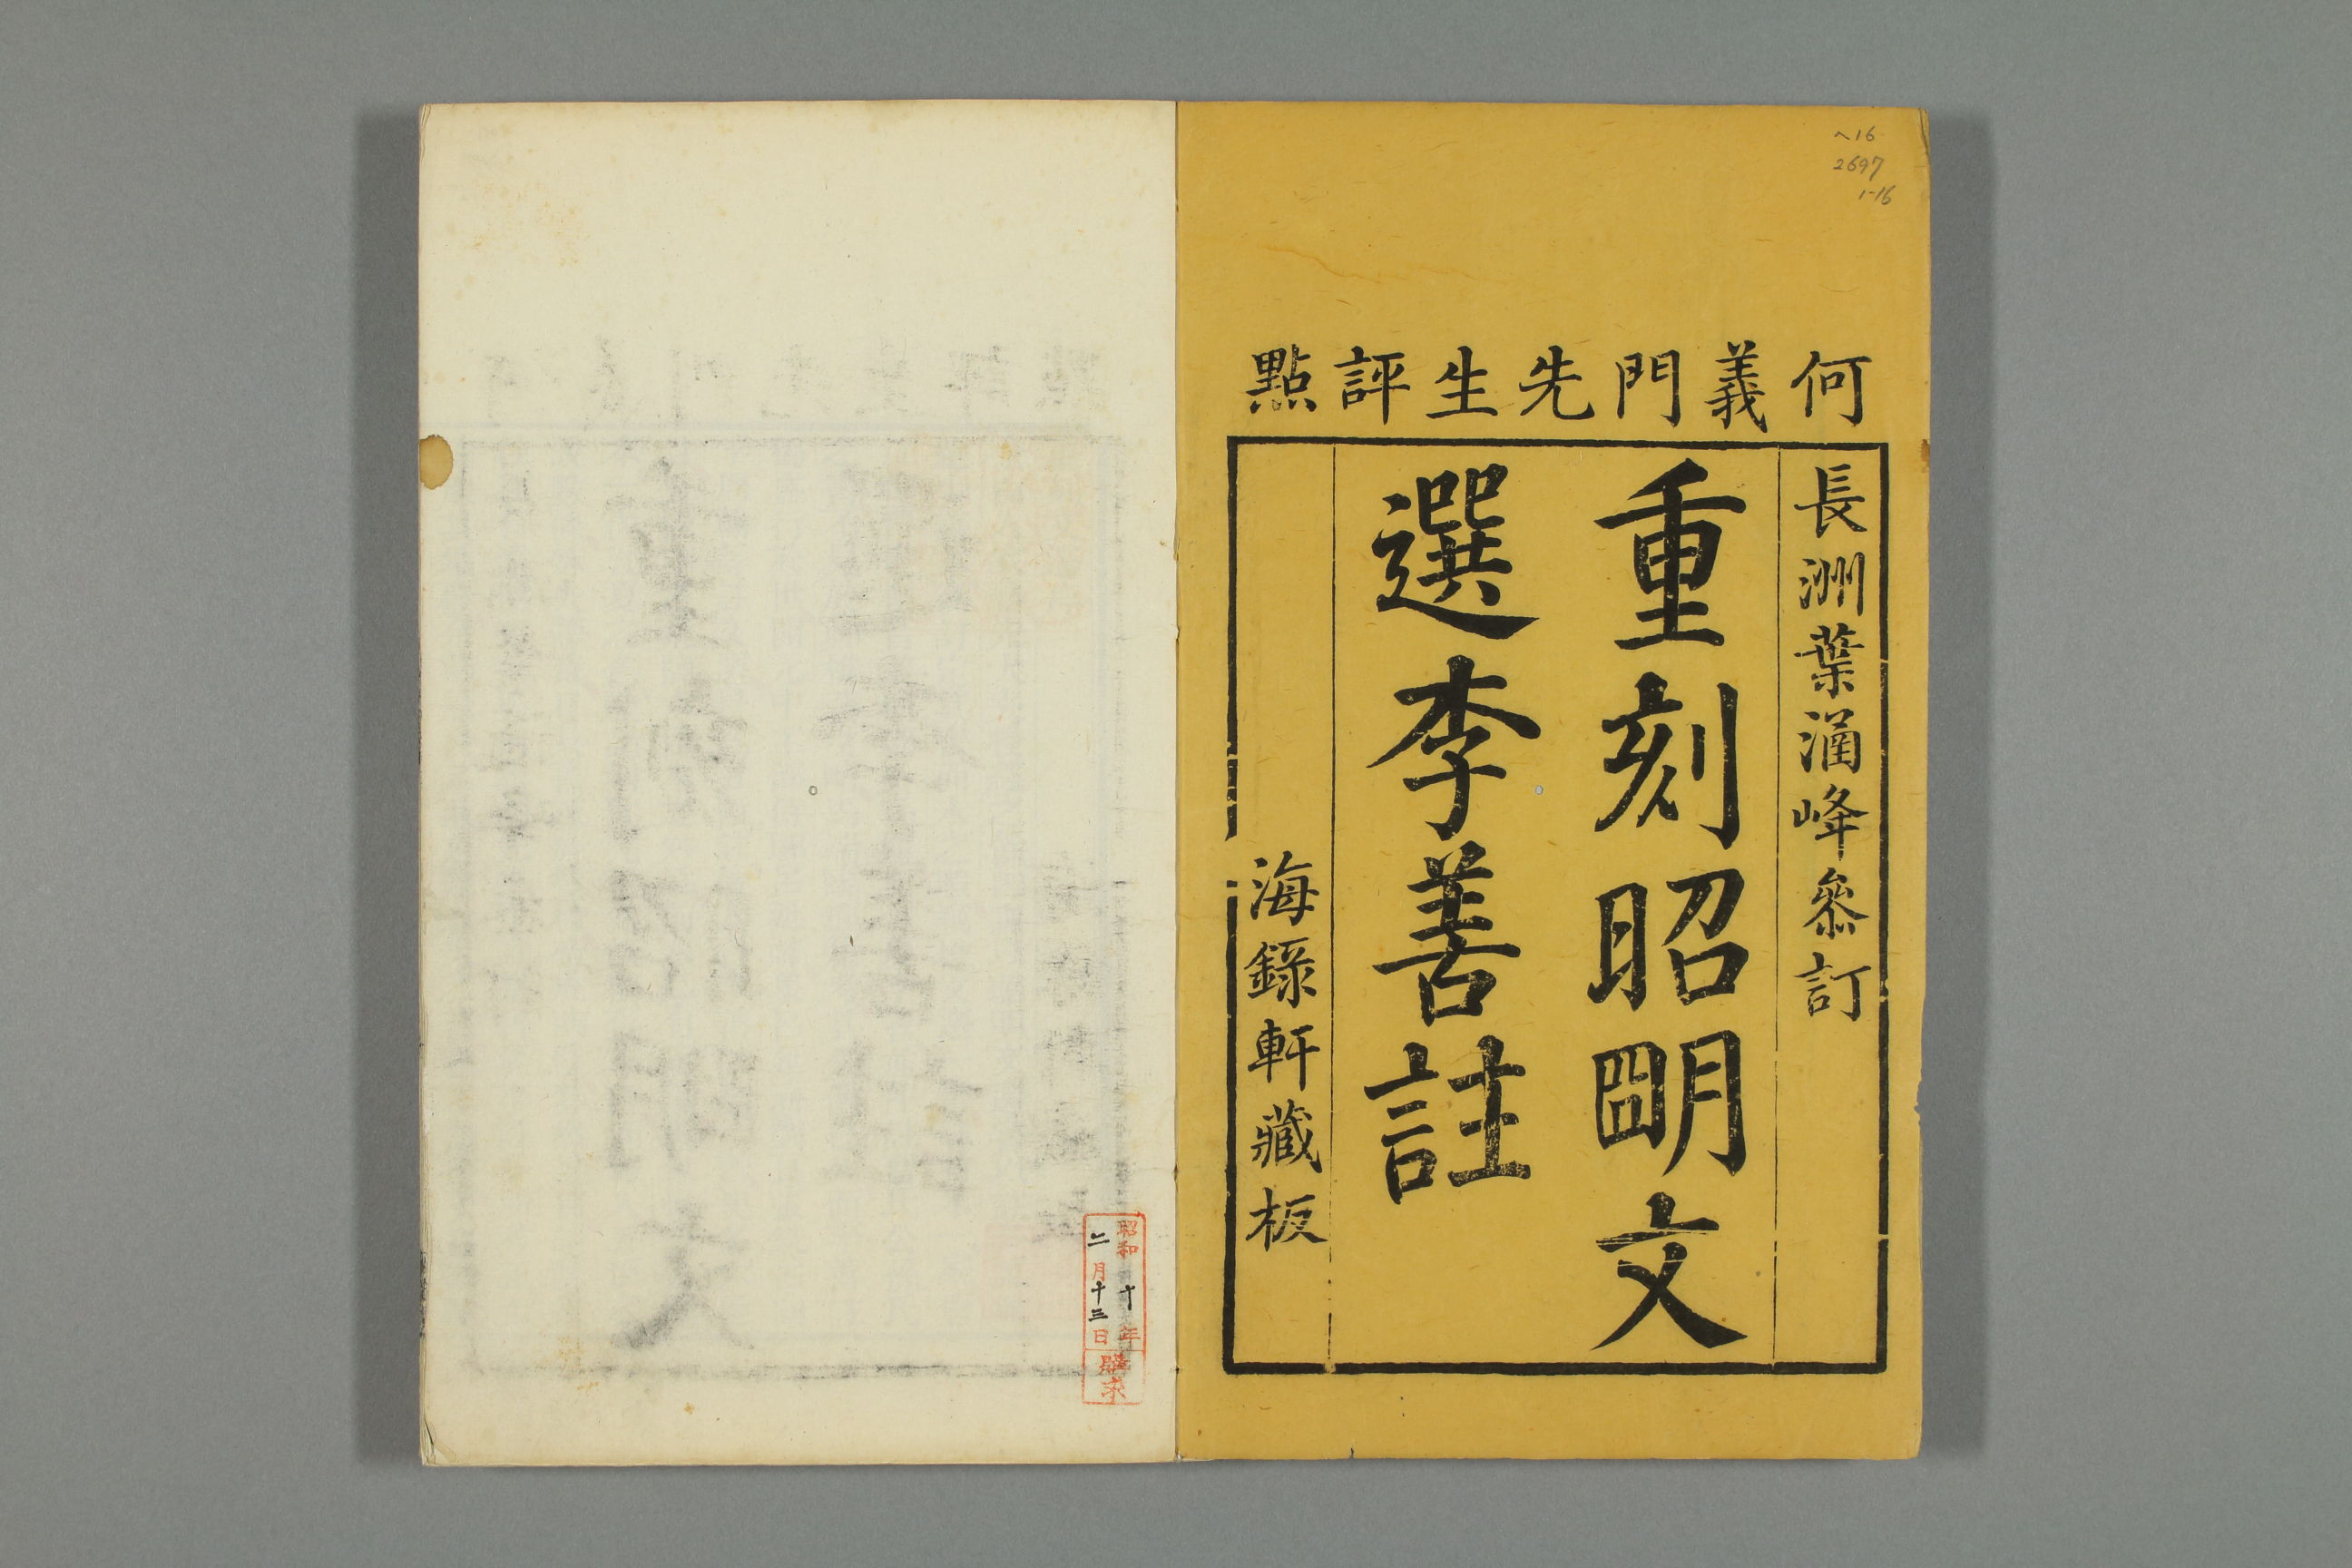 何義門先生評點
長洲葉涵峰參訂
重刻昭明文
選李善註
海錄軒藏板
^16
2697
1-16
昭和十年
二月十三日
購求